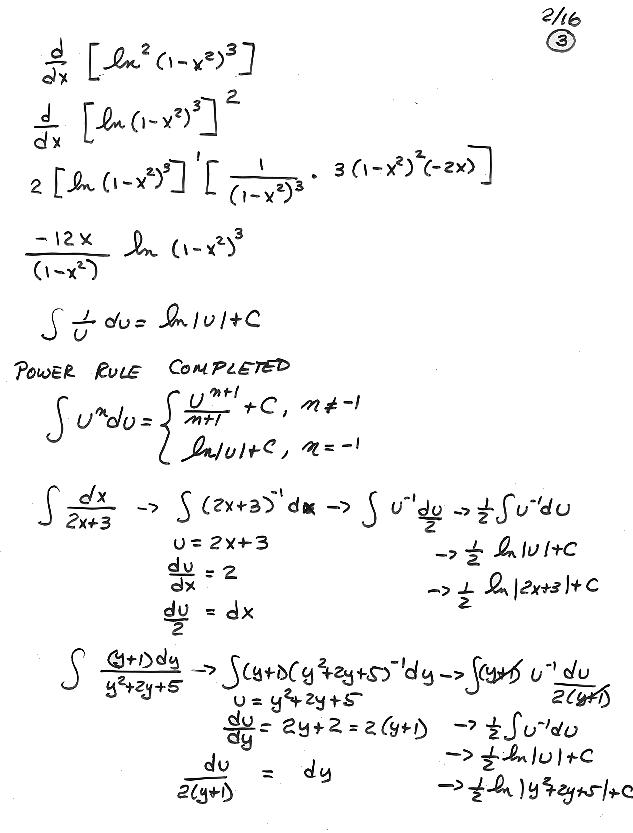 2/16
3
d/dx [ln² (1-x²)³]
d/dx [ln (1-x²)³]²
2 [ln (1-x²)³]¹ [1/(1-x²)³ · 3(1-x²)²(-2x)]
-12x/(1-x²) ln (1-x²)³
∫ 1/U dU = ln|U|+C
POWER RULE COMPLETED
∫ Uⁿ dU = { Uⁿ⁺¹/n+1 + C, n ≠ -1
ln|U|+C, n = -1
∫ dx/2x+3 -> ∫ (2x+3)⁻¹ dx -> ∫ U⁻¹ dU/2 -> 1/2 ∫ U⁻¹ dU
U = 2x+3 -> 1/2 ln|U|+C
dU/dx = 2 -> 1/2 ln|2x+3|+C
dU/2 = dx
∫ (y+1)dy/y²+2y+5 -> ∫(y+1)(y²+2y+5)⁻¹ dy -> ∫(y+1) U⁻¹ dU/2(y+1)
U = y²+2y+5
dU/dy = 2y+2 = 2(y+1) -> 1/2 ∫ U⁻¹ dU
-> 1/2 ln|U|+C
dU/2(y+1) = dy -> 1/2 ln|y²+2y+5|+C